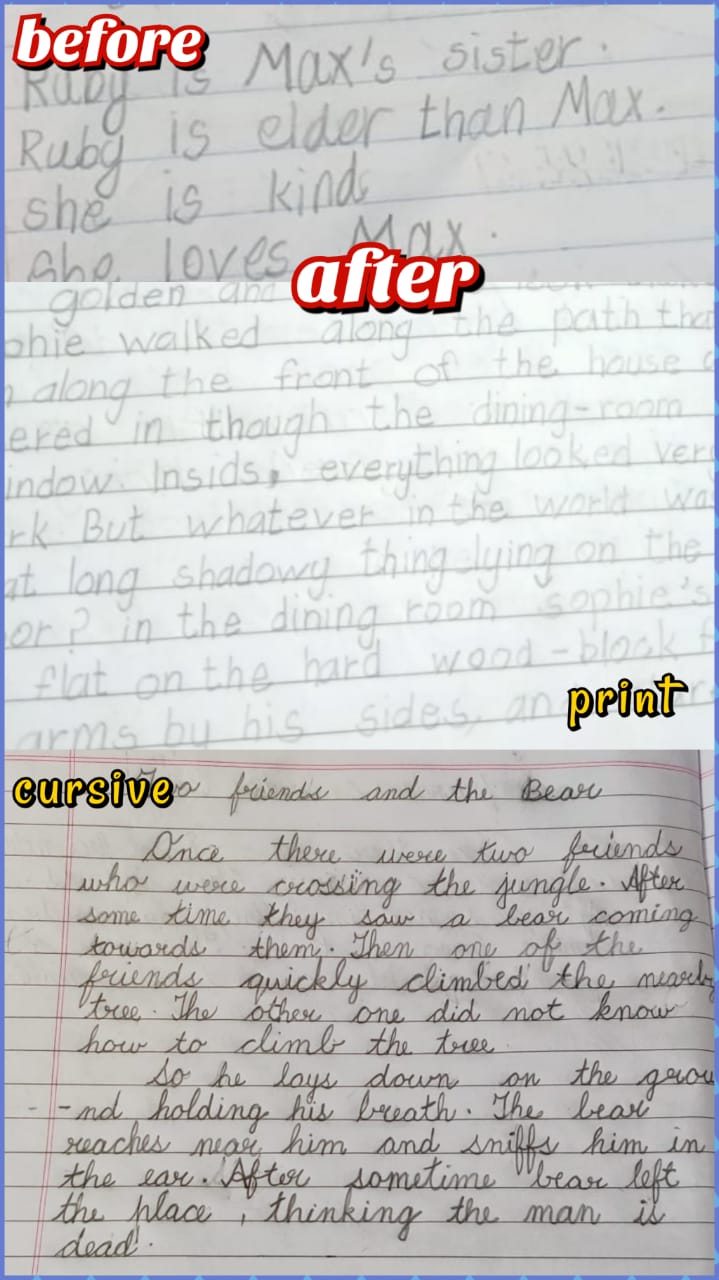 before
Ruby is Max's sister.
Ruby is elder than Max.
she is kind
She loves Max.
after
golden and
phie walked along the path tha
along the front of the house
ered in though the dining-room
indow. Insids, everything looked very
rk. But whatever in the world wa
at long shadowy thing lying on the
or? in the dining room sophie's
flat on the hard wood-block f
print
arms by his sides, an
cursive
Two friends and the Bear
Once there were two friends
who were crossing the jungle. After
some time they saw a bear coming
towards them. Then one of the
friends quickly climbed the nearby
tree. The other one did not know
how to climb the tree.
So he lays down on the grou
-nd holding his breath. The bear
reaches near him and sniffs him in
the ear. After sometime bear left
the place, thinking the man is
dead.